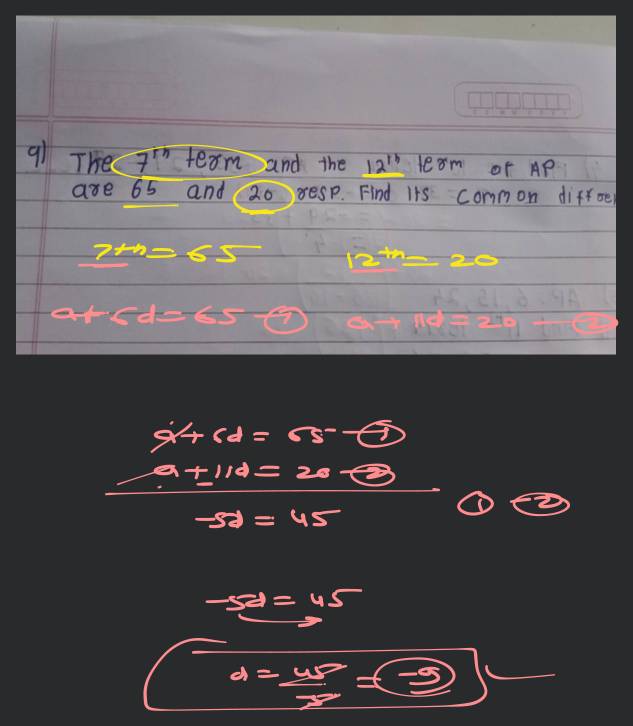 q) The 7th term and the 12th term of AP
are 65 and 20 resp. Find its common differen
7th = 65 12th = 20
a+6d=65 —① a+11d=20 —②
a+6d = 65 —①
a+11d = 20 —②
-5d = 45 ① - ②
-5d = 45
d = 45/-5 = -9